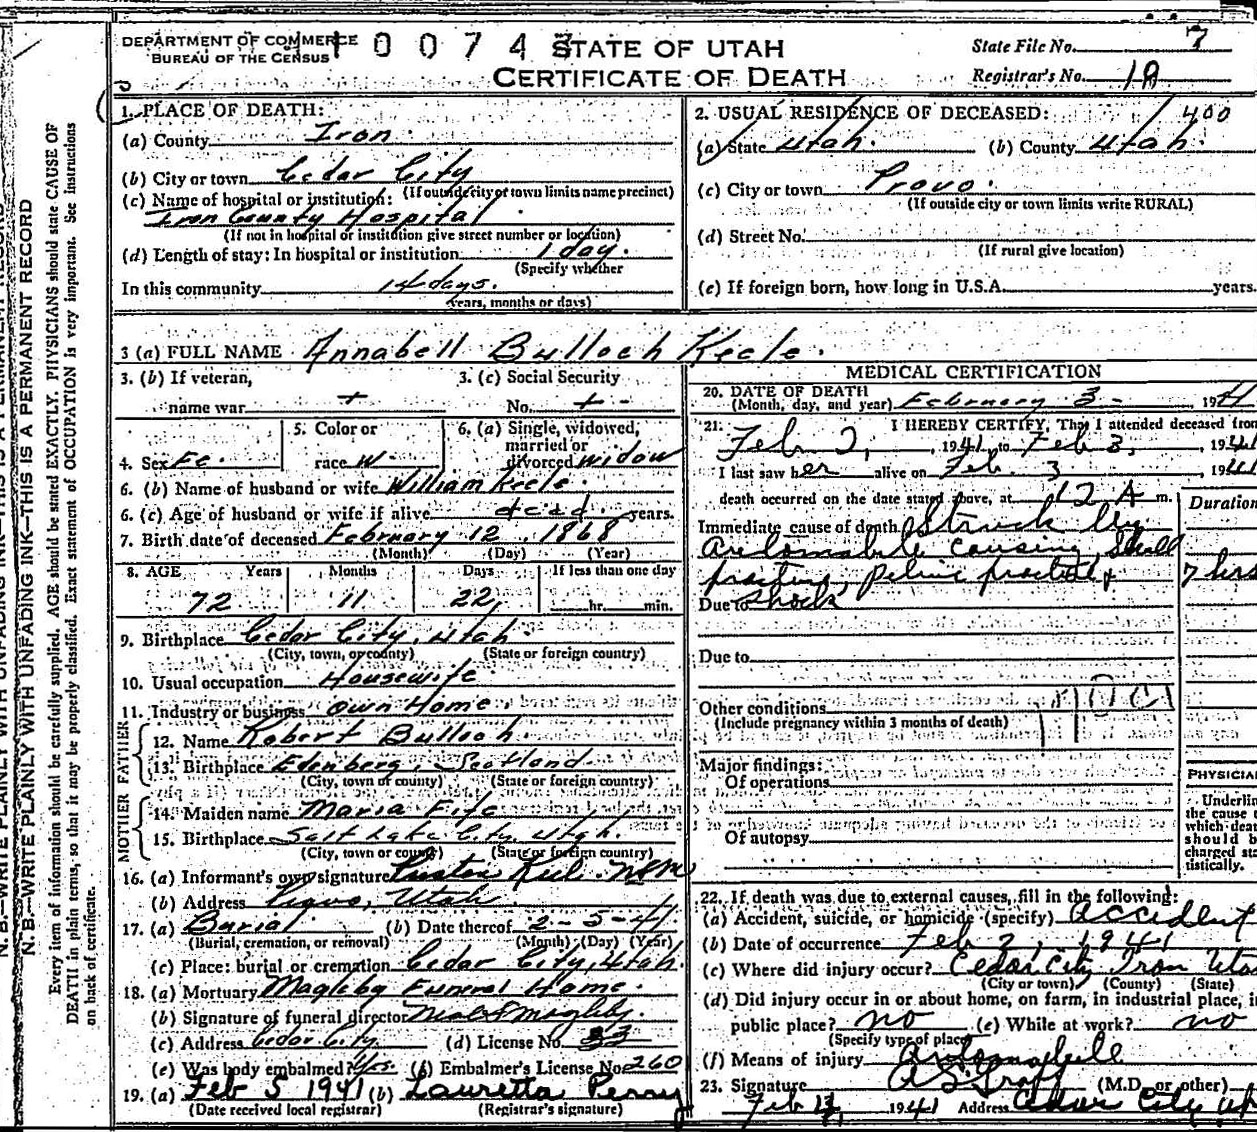 DEPARTMENT OF COMMERCE
BUREAU OF THE CENSUS
STATE OF UTAH
CERTIFICATE OF DEATH
State File No. 7
Registrar's No. 18
1. PLACE OF DEATH:
(a) County Iron
(b) City or town Cedar City
(If outside city or town limits name precinct)
(c) Name of hospital or institution:
Iron County Hospital
(If not in hospital or institution give street number or location)
(d) Length of stay: In hospital or institution 1 day.
(Specify whether
In this community 14 days.
years, months or days)
2. USUAL RESIDENCE OF DECEASED: 400
(a) State Utah. (b) County Utah.
(c) City or town Provo.
(If outside city or town limits write RURAL)
(d) Street No.
(If rural give location)
(e) If foreign born, how long in U.S.A. years.
3 (a) FULL NAME Annabell Bulloch Keele.
3. (b) If veteran,
name war
3. (c) Social Security
No.
4. Sex Fe.
5. Color or
race W
6. (a) Single, widowed,
married or
divorced widow
6. (b) Name of husband or wife William Keele.
6. (c) Age of husband or wife if alive dead years.
7. Birth date of deceased February 12, 1868
(Month) (Day) (Year)
8. AGE Years Months Days If less than one day
72 11 22 hr. min.
9. Birthplace Cedar City, Utah.
(City, town, or county) (State or foreign country)
10. Usual occupation Housewife
11. Industry or business own Home.
FATHER
12. Name Robert Bulloch.
13. Birthplace Edenberg, Scotland.
(City, town or county) (State or foreign country)
MOTHER
14. Maiden name Maria Fife
15. Birthplace Salt Lake City, Utah.
(City, town or county) (State or foreign country)
16. (a) Informant's own signature
(b) Address Utah
17. (a) Burial (b) Date thereof 2-5-41
(Burial, cremation, or removal) (Month) (Day) (Year)
(c) Place: burial or cremation Cedar City, Utah.
18. (a) Mortuary Magleby Funeral Home.
(b) Signature of funeral director Magleby.
(c) Address Cedar City. (d) License No. 33
(e) Was body embalmed? Yes. (f) Embalmer's License No. 260
19. (a) Feb 5 1941 (b) Lauretta Perry
(Date received local registrar) (Registrar's signature)
MEDICAL CERTIFICATION
20. DATE OF DEATH
(Month, day, and year) February 3- 1941
21. I HEREBY CERTIFY, That I attended deceased from
Feb 2, 1941, to Feb 3, 1941
I last saw her alive on Feb. 3 1941
death occurred on the date stated above, at 12 A m.
Duration
Immediate cause of death Struck by
automobile causing skull
fracture, pelvic fracture + 7 hrs
Due to shock
Due to
Other conditions
(Include pregnancy within 3 months of death)
Major findings:
Of operations
Of autopsy
PHYSICIAN
Underline
the cause
which
should be
charged
tistically.
22. If death was due to external causes, fill in the following:
(a) Accident, suicide, or homicide (specify) Accident
(b) Date of occurrence Feb 2, 1941
(c) Where did injury occur? Cedar City Iron Utah
(City or town) (County) (State)
(d) Did injury occur in or about home, on farm, in industrial place, in
public place? no (e) While at work? no
(Specify type of place)
(f) Means of injury Automobile
23. Signature (M.D. or other)
Feb 1941 Address Cedar City Ut
N.B.—WRITE PLAINLY WITH UNFADING INK—THIS IS A PERMANENT RECORD
Every item of information should be carefully supplied. AGE should be stated EXACTLY. PHYSICIANS should state CAUSE OF
DEATH in plain terms, so that it may be properly classified. Exact statement of OCCUPATION is very important. See instructions
on back of certificate.